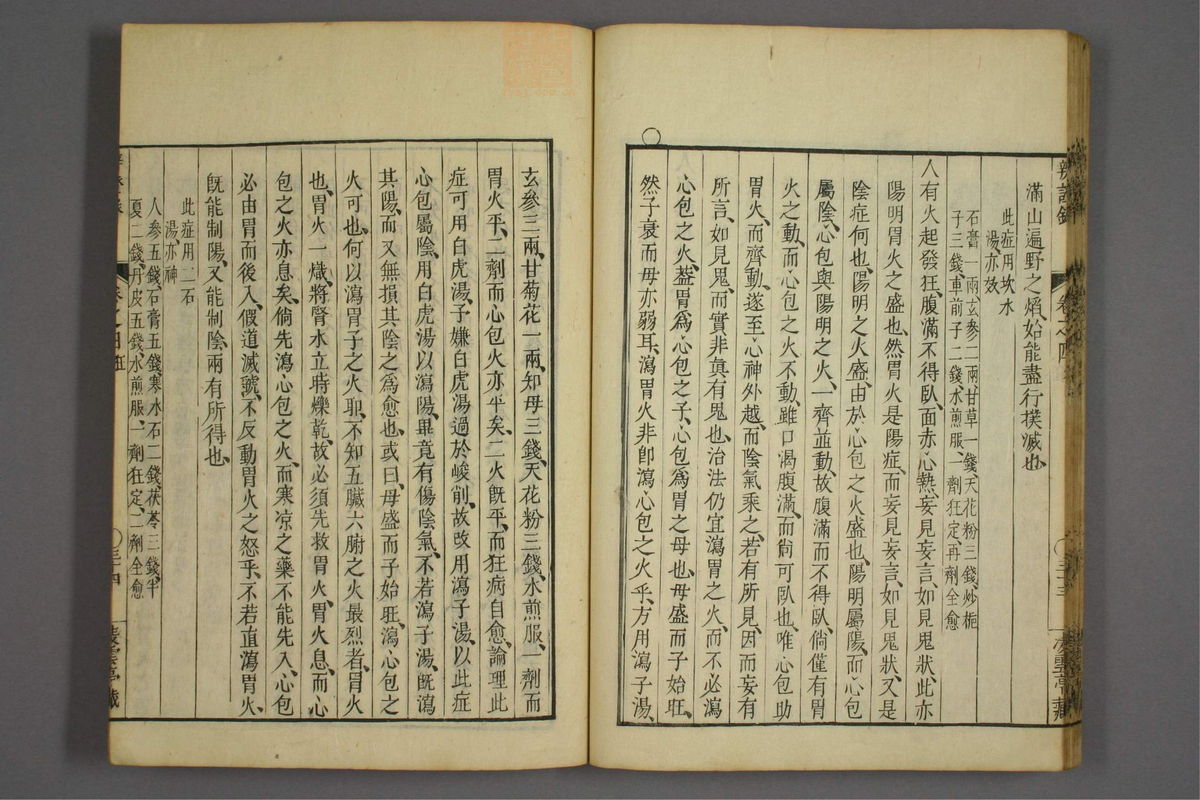 辨證錄
卷之四
三十三
凌雲亭藏
滿山遍野之焰、始能盡行撲滅也、
此症用坎水
湯、亦妙、
石膏一兩、玄參二兩、甘草一錢、天花粉三錢、炒梔
子三錢、車前子二錢、水煎服、一劑狂定、再劑全愈
人有火起發狂、腹滿不得臥、面赤心熱、妄見妄言、如見鬼狀、此亦
陽明胃火之盛也、然胃火是陽症、而妄見妄言、如見鬼狀、又是
陰症何也、陽明之火盛、由於心包之火盛也、陽明屬陽、而心包
屬陰、心包與陽明之火、一齊並動、故腹滿而不得臥、倘僅有胃
火之動、而心包之火不動、雖口渴腹滿、而尚可臥也、唯心包助
胃火、而齊動、遂至心神外越、而陰氣乘之、若有所見、因而妄有
所言、如見鬼而實非真有鬼也、治法仍宜瀉胃之火、而不必瀉
心包之火、葢胃為心包之子、心包為胃之母也、母盛而子始旺、
然子衰而母亦弱耳、瀉胃火非即瀉心包之火乎、方用瀉子湯、
玄參三兩、甘菊花一兩、知母三錢、天花粉三錢、水煎服、一劑而
胃火平、二劑而心包火亦平矣、二火既平、而狂病自愈、論理此
症可用白虎湯、予嫌白虎湯過於峻削、故改用瀉子湯、以此症
心包屬陰、用白虎湯以瀉陽、畢竟有傷陰氣、不若瀉子湯、既瀉
其陽、而又無損其陰之為愈也、或曰、母盛而子始旺、瀉心包之
火可也、何以瀉胃子之火耶、不知五臟六腑之火最烈者、胃火
也、胃火一熾、將腎水立時爍乾、故必須先救胃火、胃火息、而心
包之火亦息矣、倘先瀉心包之火、而寒涼之藥不能先入、心包
必由胃而後入、假道滅虢、不反動胃火之怒乎、不若直瀉胃火、
既能制陽、又能制陰、兩有所得也、
此症用二石
湯、亦神
人參五錢、石膏五錢、寒水石二錢、茯苓三錢、半
夏二錢、丹皮五錢、水煎服、一劑狂定、二劑全愈
三十四